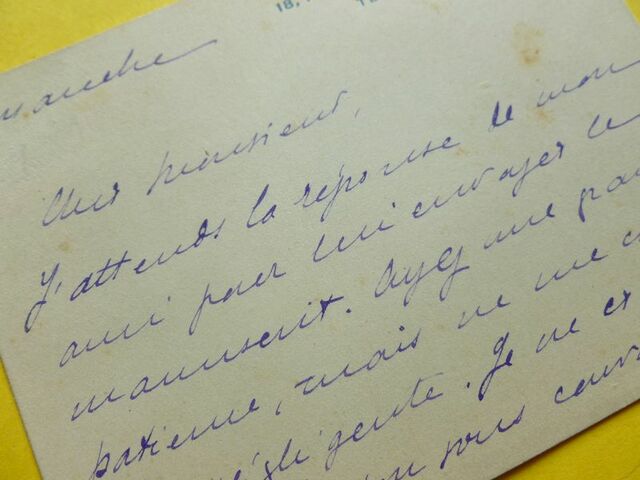 18,
manche
Cher monsieur,
J'attends la réponse de mon
ami pour lui envoyer le
manuscrit. Ayez une
patience, mais ne me
négligente. Je ne